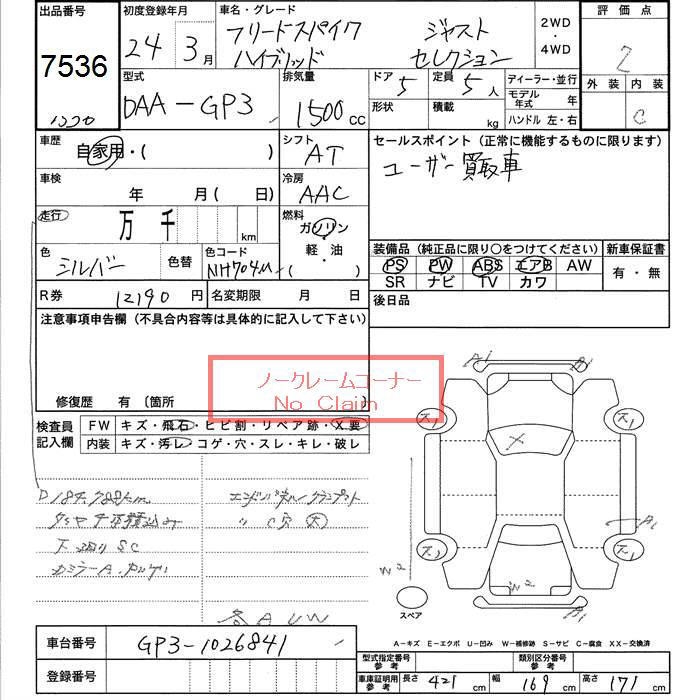 出品番号 初度登録年月 車名・グレード 評価点
7536 24年3月 フリードスパイク ジャスト 2WD・4WD
ハイブリッド セレクション
外装 内装
C
型式 排気量 ドア 定員 ディーラー・並行
DAA-GP3 1500cc 5 5人 モデル年式 年
形状 積載 kg ハンドル 左・右
車歴 自家用・( ) シフト AT セールスポイント（正常に機能するものに限ります）
ユーザー買取車
車検 年 月( 日) 冷房 AAC
走行 万 千 km 燃料 ガソリン・軽・油 ( )
装備品（純正品に限り○をつけてください） 新車保証書
色 シルバー 色替 色コード NH704M PS PW ABS エアB AW 有・無
SR ナビ TV カワ
R券 12190円 名変期限 月 日 後日品
注意事項申告欄（不具合内容等は具体的に記入して下さい）
ノークレームコーナー
No Claim
修復歴 有 〔箇所
検査員記入欄 FW キズ・飛石・ヒビ割・リペア跡・X要
内装 キズ・汚レ・コゲ・穴・スレ・キレ・破レ
A1 B1
X
W2 W2
B1
B1
スペア
下廻りSC
各AUW
車台番号 GP3-1026841
登録番号
A-キズ E-エクボ U-凹み W-補修跡 S-サビ C-腐食 XX-交換済
型式指定番号 参考 類別区分番号 参考
車庫証明用 参考 長さ 421cm 幅 169cm 高さ 171cm